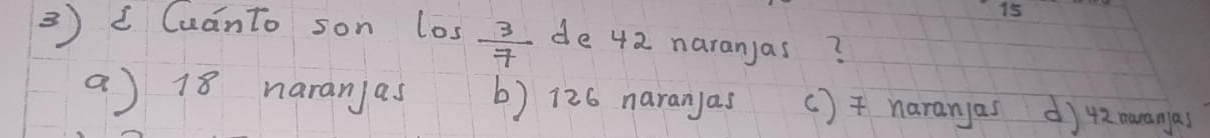 15
3) ¿ Cuánto son los 3/7 de 42 naranjas ?
a) 18 naranjas b) 126 naranjas c) 7 naranjas d) 42 naranjas